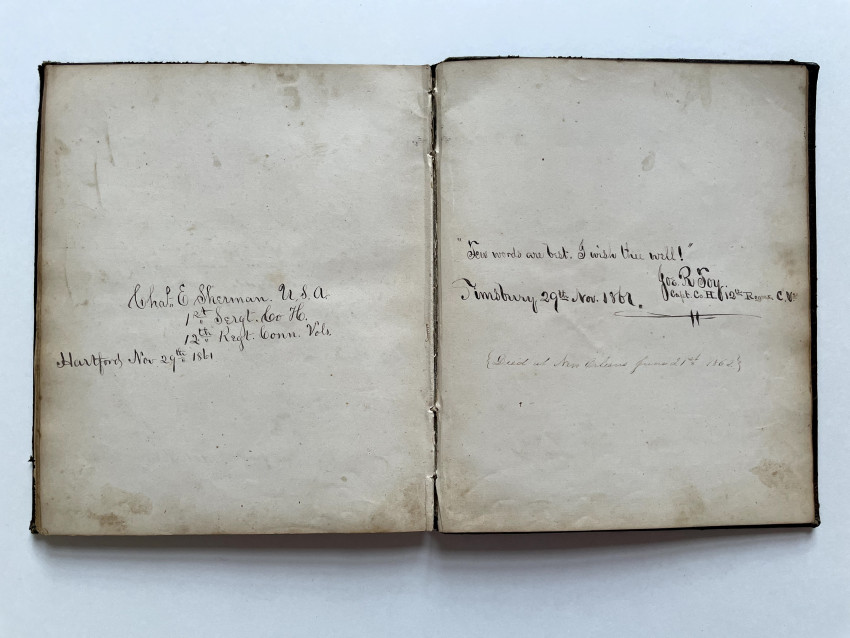 Chas. E. Sherman. U. S. A.
1st Sergt. Co H.
12th Regt. Conn. Vols.
Hartford Nov 29th 1861
"Few words are best. I wish thee well!"
Jos. R Toy.
Capt. Co. H. 12th Regmt. C. V.
Simsbury 29th Nov. 1861.
{Died at New Orleans 21st 1862}